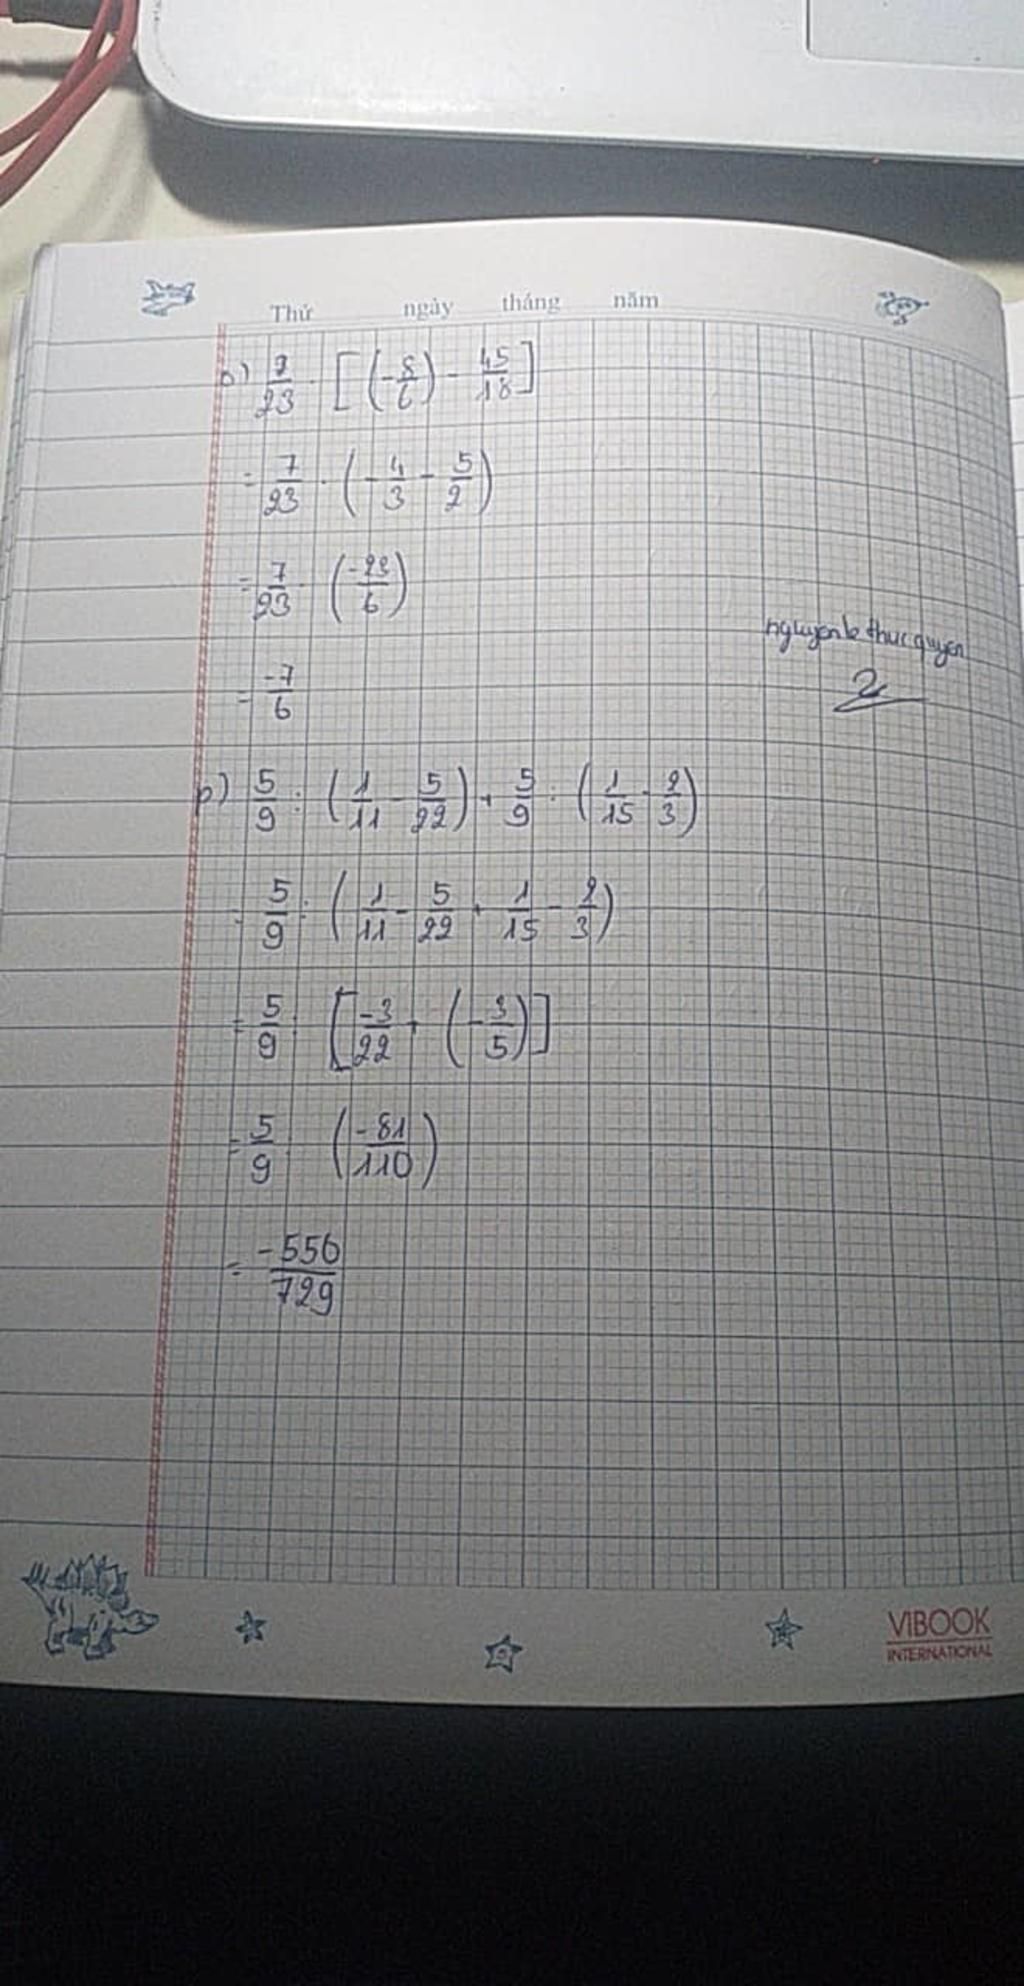 Thứ ngày tháng năm
a) 7/23 . [(-8/6) - 45/18]
= 7/23 . (-4/3 - 5/2)
= 7/23 . (-23/6)
= -7/6
nguyen le thuc quyen
b) 5/9 : (1/11 - 5/22) + 5/9 : (1/15 - 2/3)
= 5/9 : (1/11 - 5/22 + 1/15 - 2/3)
= 5/9 : [-3/22 + (-3/5)]
= 5/9 : (-81/110)
= -550/729
VIBOOK
INTERNATIONAL